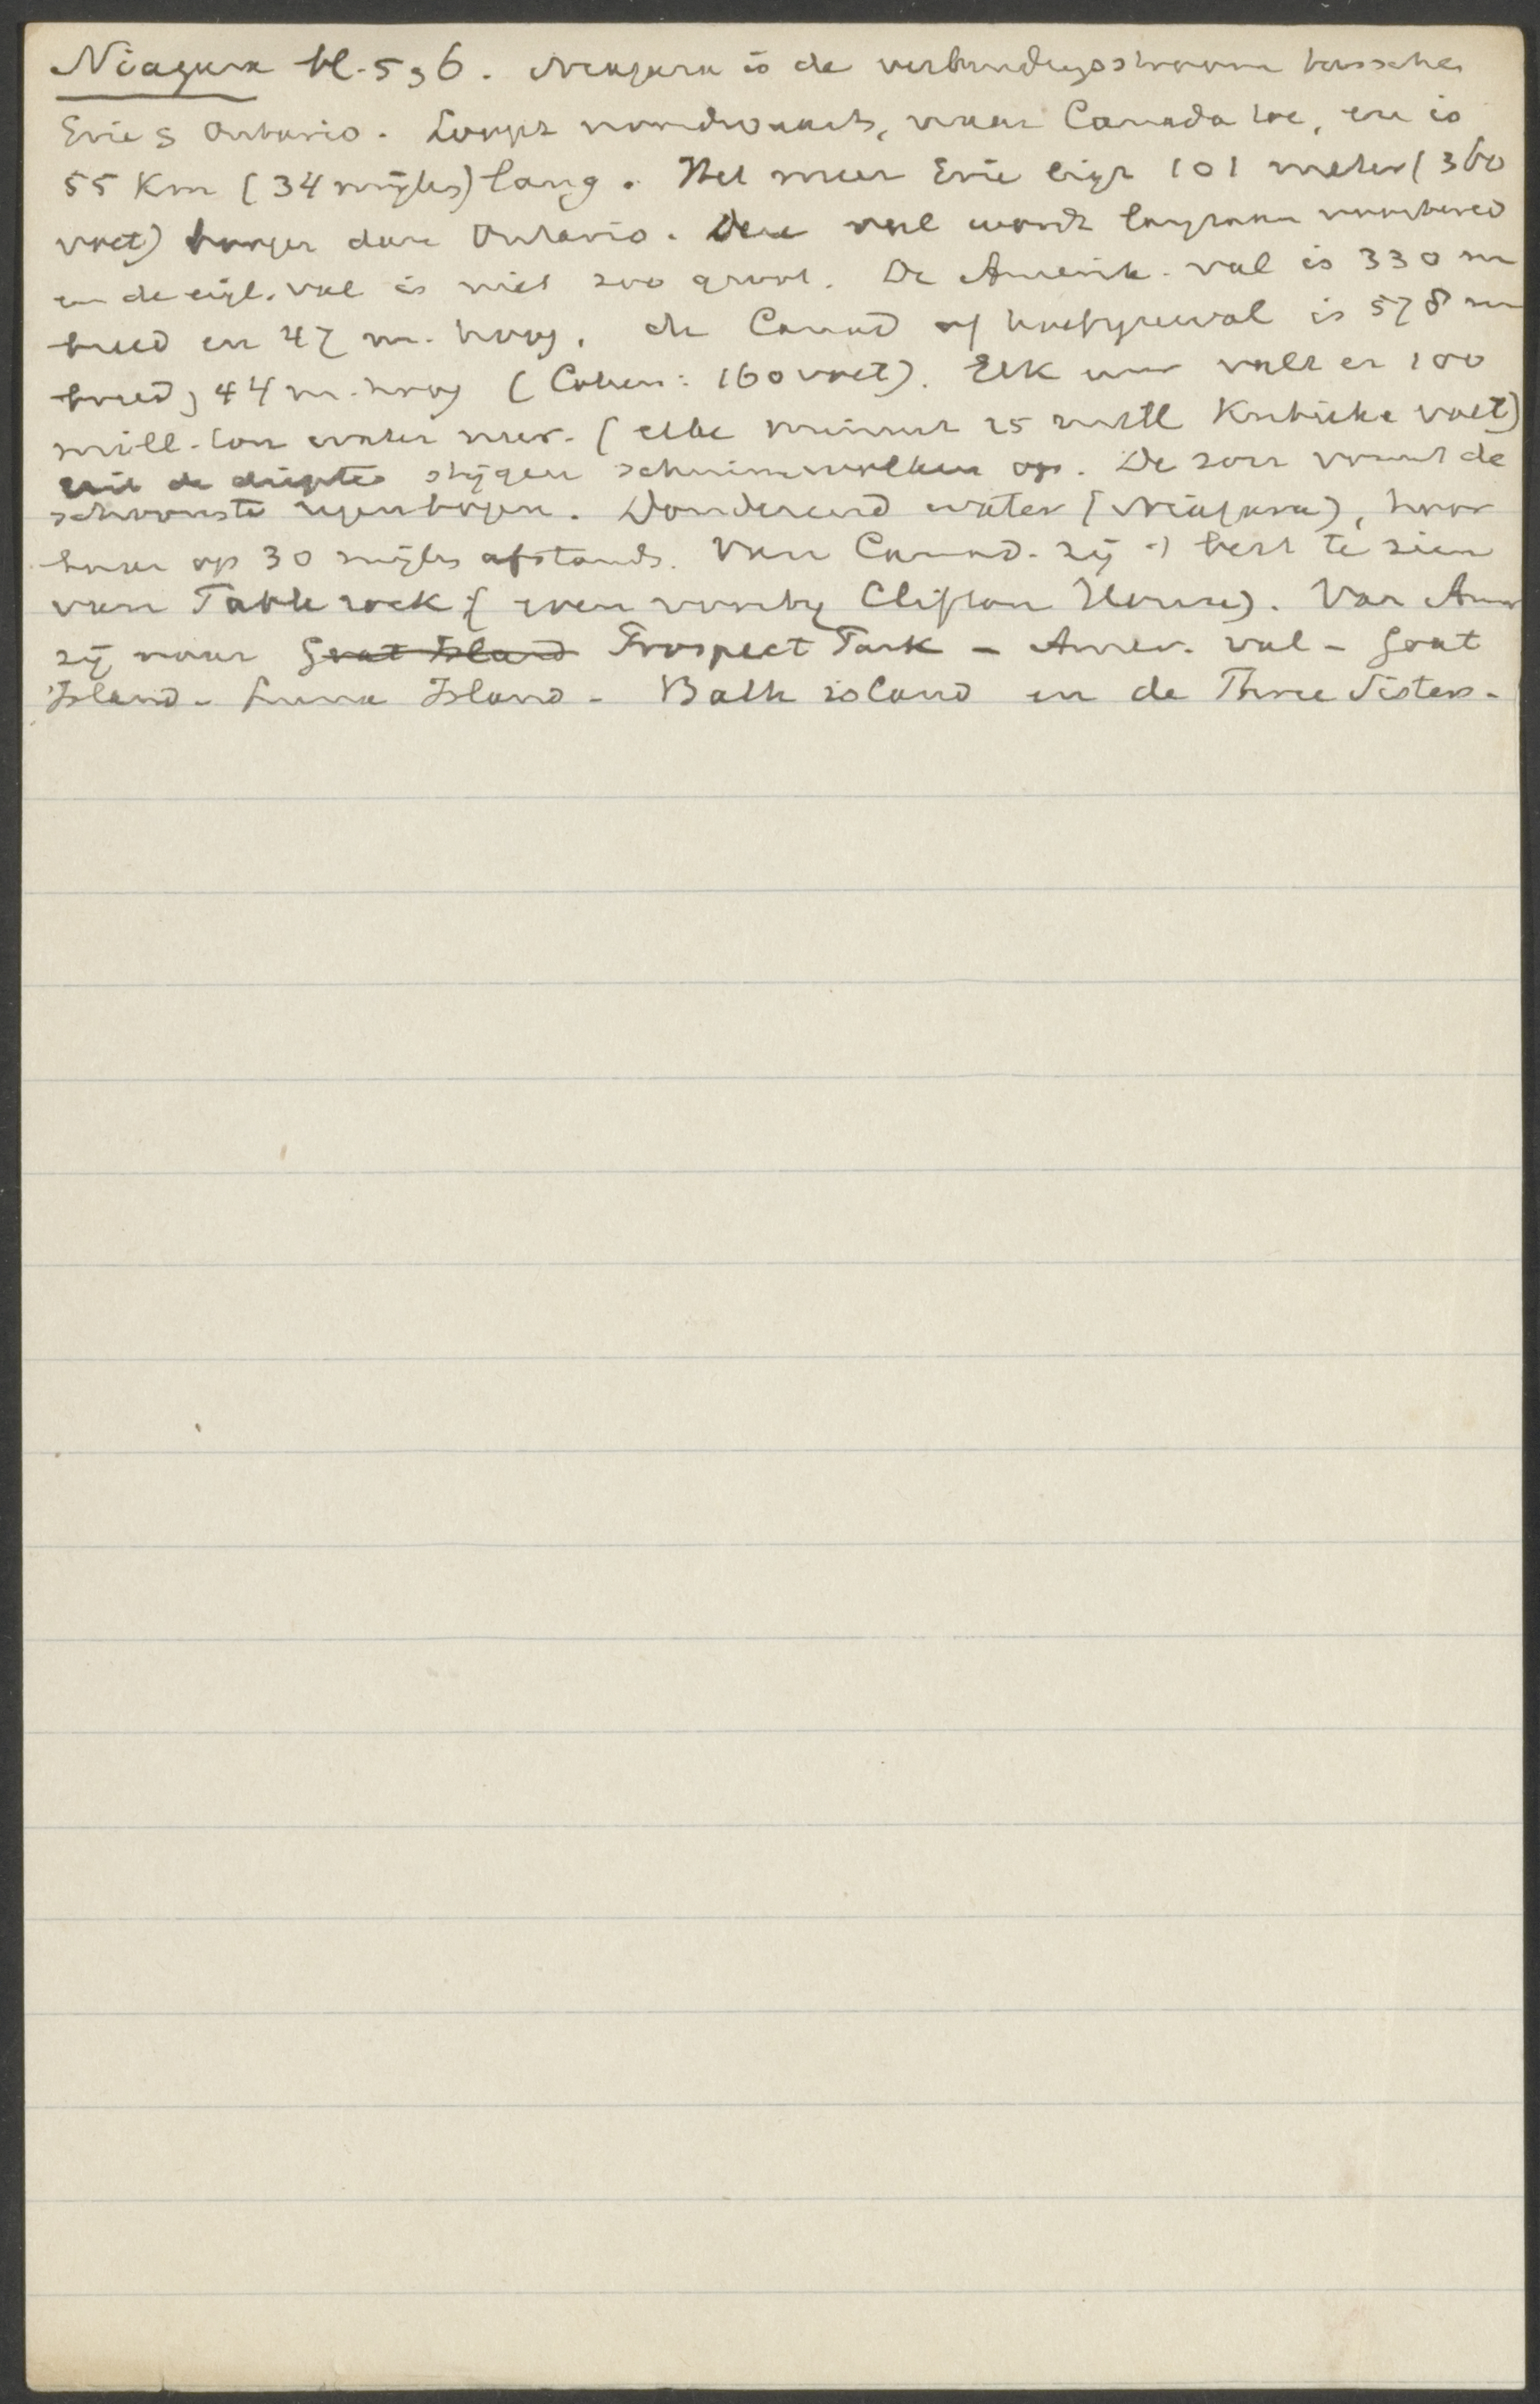 Niagara bl. 5 en 6. Niagara is de verbindingsstroom tusschen
Erie en Ontario. Loopt noordwaarts, naar Canada toe, en is
55 Km (34 mijles) lang. Het meer Erie ligt 101 meter (360
voet) hooger dan Ontario. Den val wordt langzaam voorbereid
en de eigl. val is niet zoo groot. De Amerik. val is 330 m
breed en 47 m. hoog, de Canad of hoefijzerval is 578 m
breed, 44 m. hoog (Cohen: 160 voet). Elk uur valt er 100
mill. ton water neer. (elke minuut 25 mill Kubieke voet)
uit de diepte stijgen schuimwolken op. De zon vormt de
schoonste regenbogen. Donderend water (Niagara), hoor
baar op 30 mijles afstands. Van Canad. zij 't best te zien
van Table rock (even voorby Clifton House). Van Amer
zij naar Goat Island Prospect Park - Amer. val - Goat
Island - Luna Island - Bath island en de Three Sisters.